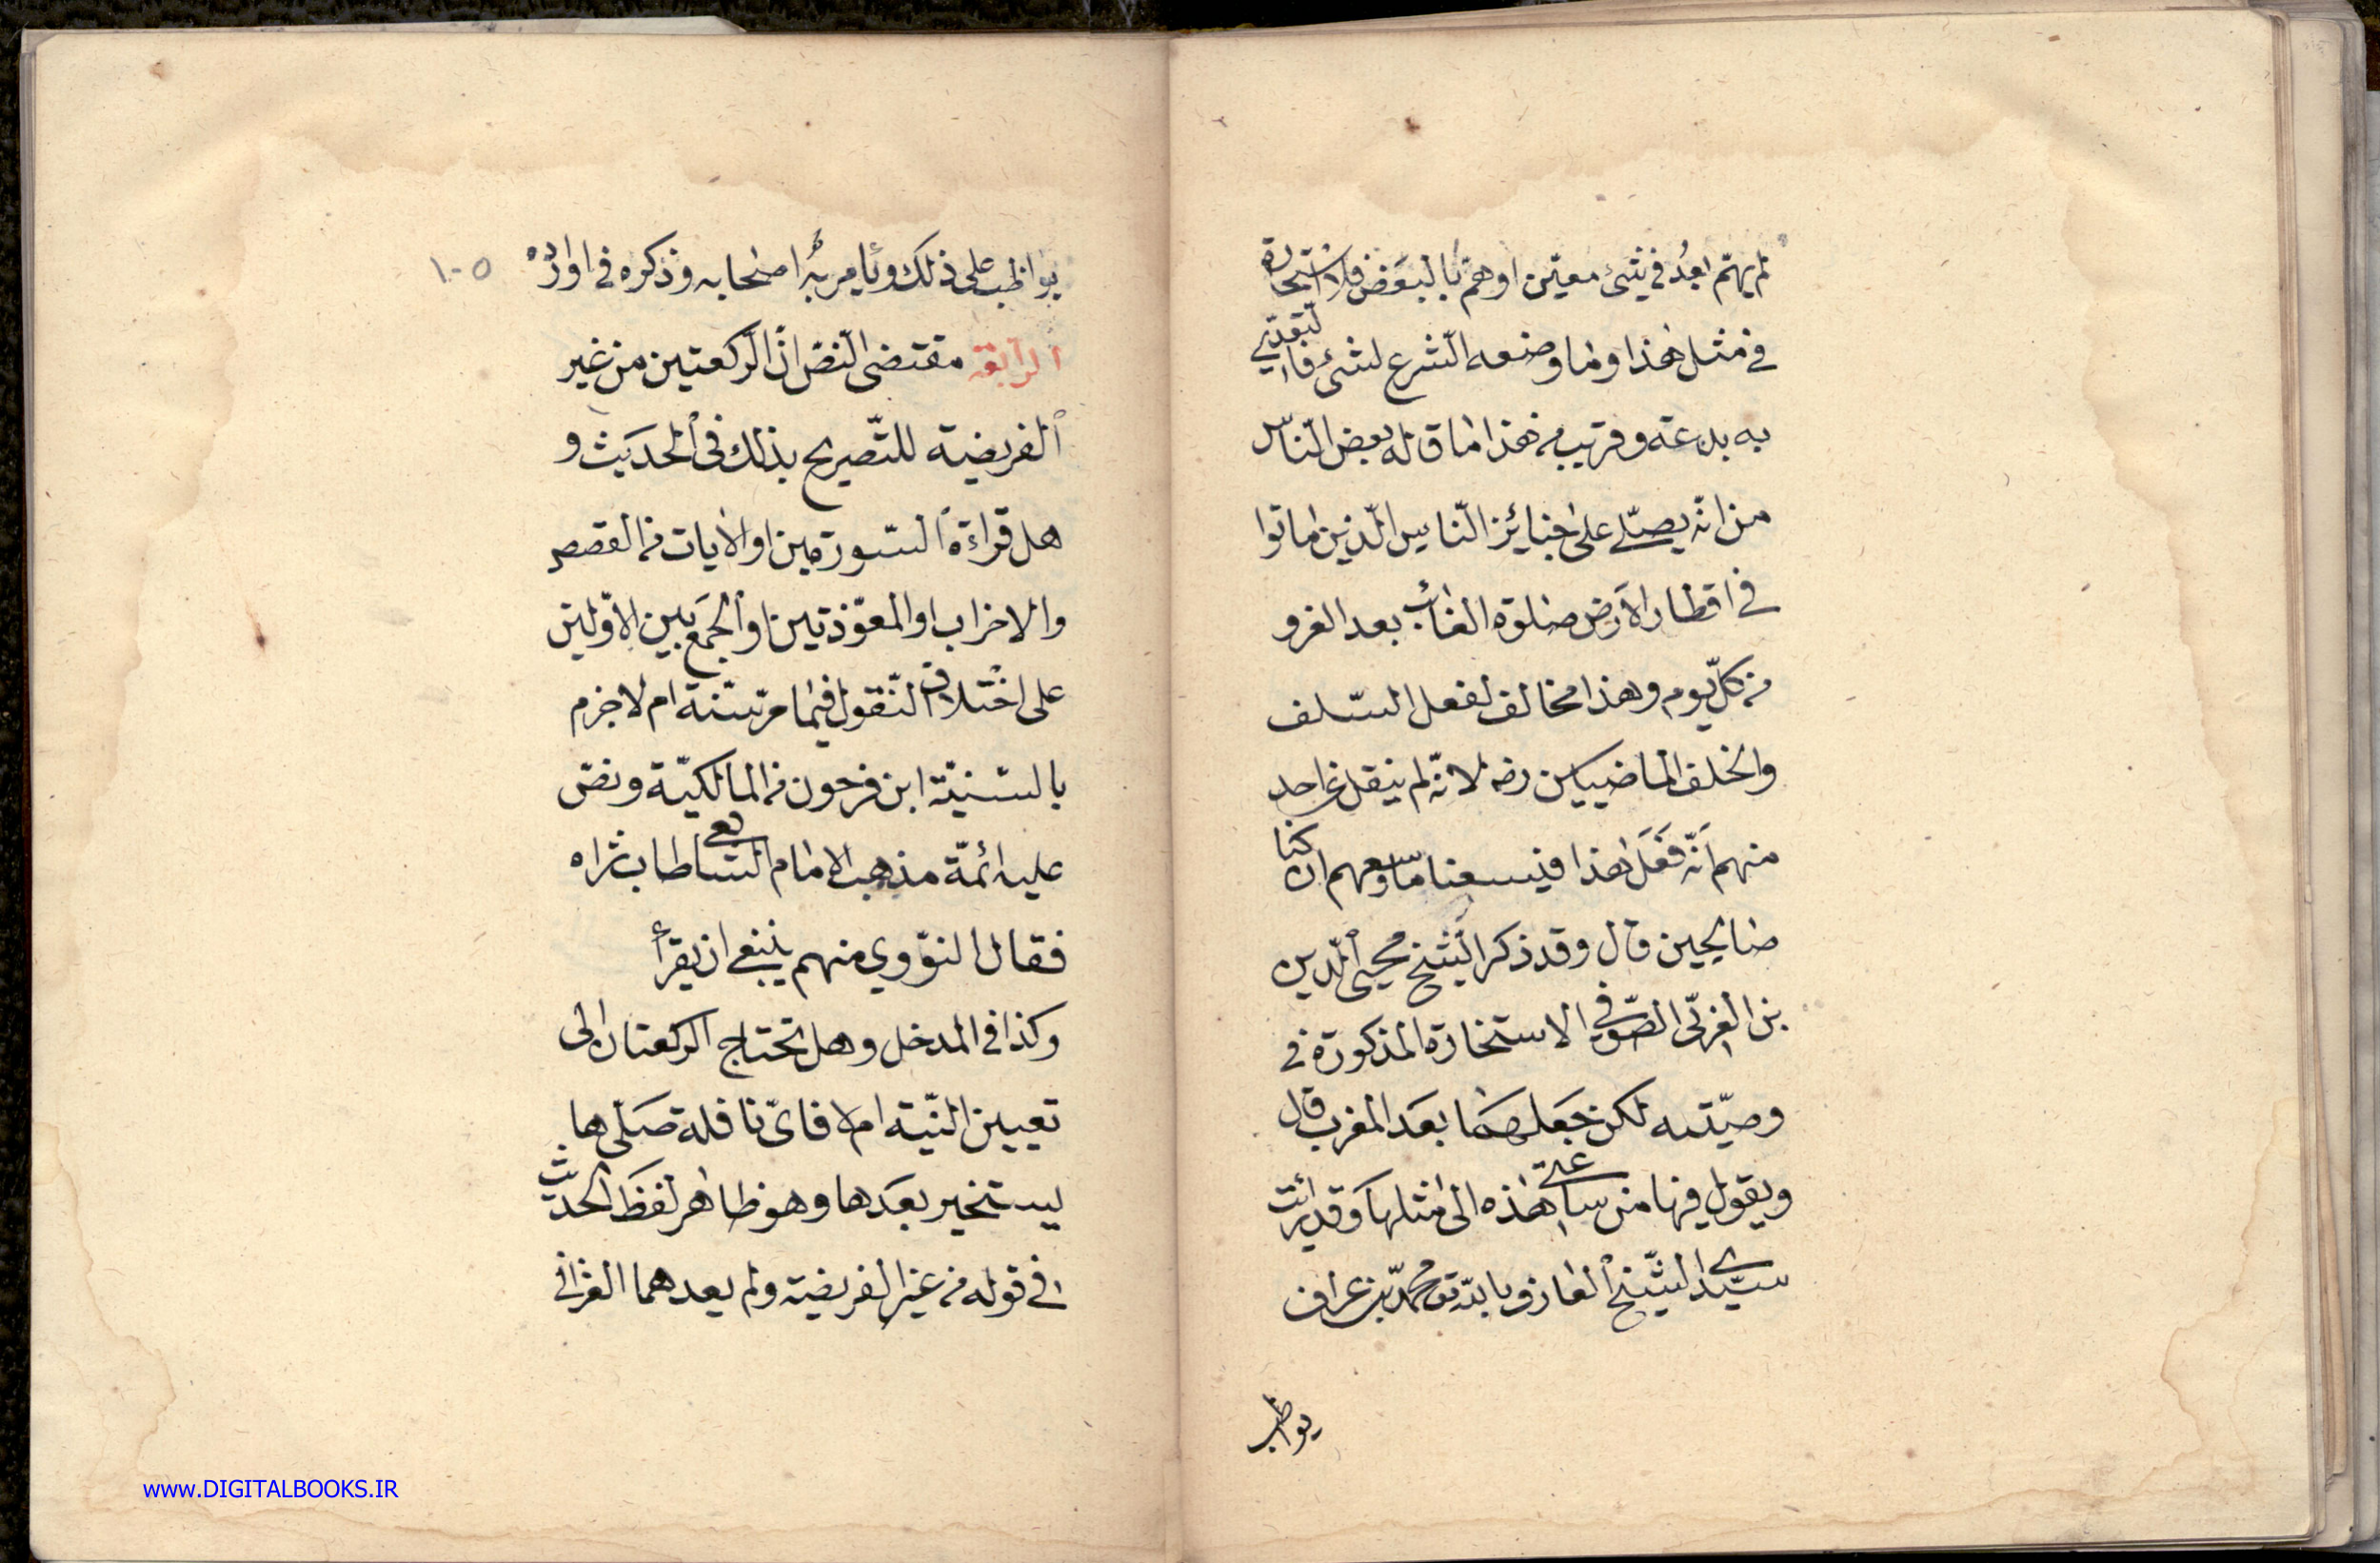 لم يهتم بعد في شئ معين او هم بالبعض فلا استخارة
في مثل هذا وما وضعه الشرع لشئ فالتعدي
به بدعة وقريب من هذا ما قاله بعض الناس
من انه يصلى على جنائز الناس الذين ماتوا
في اقطار الارض صلوة الغائب بعد الغرو
من كل يوم وهذا مخالف لفعل السلف
والخلف الماضيين رضه لانه لم ينقل عن احد
منهم انه فعل هذا فيسعنا ما وسعهم ان كنا
صالحين قال وقد ذكر الشيخ محيى الدين
بن العربى الصوفي الاستخارة المذكورة في
وصيته لكن جعلهما بعد المغرب قال
ويقول فيها من ساعتى هذه الى مثلها وقد رائت
سيدى الشيخ العارف بالله تع محمد بن عراف
يواظب
يواظب على ذلك ويامر به اصحابه وذكره في اوراده
١٠٥
الرابعة مقتضى النص ان الركعتين من غير
الفريضة للتصريح بذلك في الحديث و
هل قراءة السورتين او الايات من القصص
والاحزاب او المعوذتين او الجمع بين الاولين
على اختلاف النقول فيما مر سنة ام لا جزم
بالسنية ابن فرحون من المالكية ونص
عليه ائمة مذهب الامام الشافعى طاب ثراه
فقال النووي منهم ينبغي ان يقرأ
وكذا في المدخل وهل تحتاج الركعتان الى
تعيين النية ام لا فاى نافلة صلى ها
يستخير بعدها وهو ظاهر لفظ الحديث
في قوله من غير الفريضة ولم يعدهما الغزالي
www.DIGITALBOOKS.IR